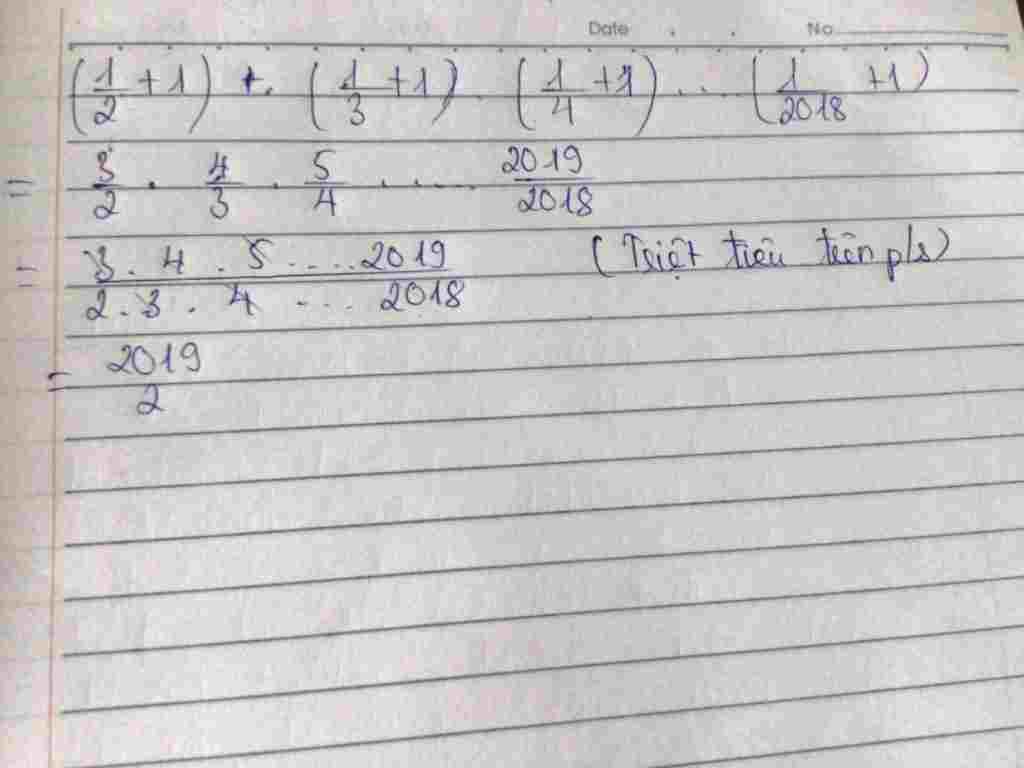 Date . . No
(1/2 + 1) +. (1/3 + 1) . (1/4 + 1) ... (1/2018 + 1)
= 3/2 . 4/3 . 5/4 ..... 2019/2018
= 3 . 4 . 5 ..... 2019 / 2 . 3 . 4 .... 2018 (Triệt tiêu trên p/s)
= 2019/2